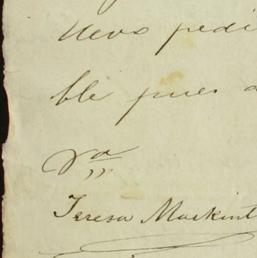 uevo pedi
ble pues
Sra
Teresa Mackint